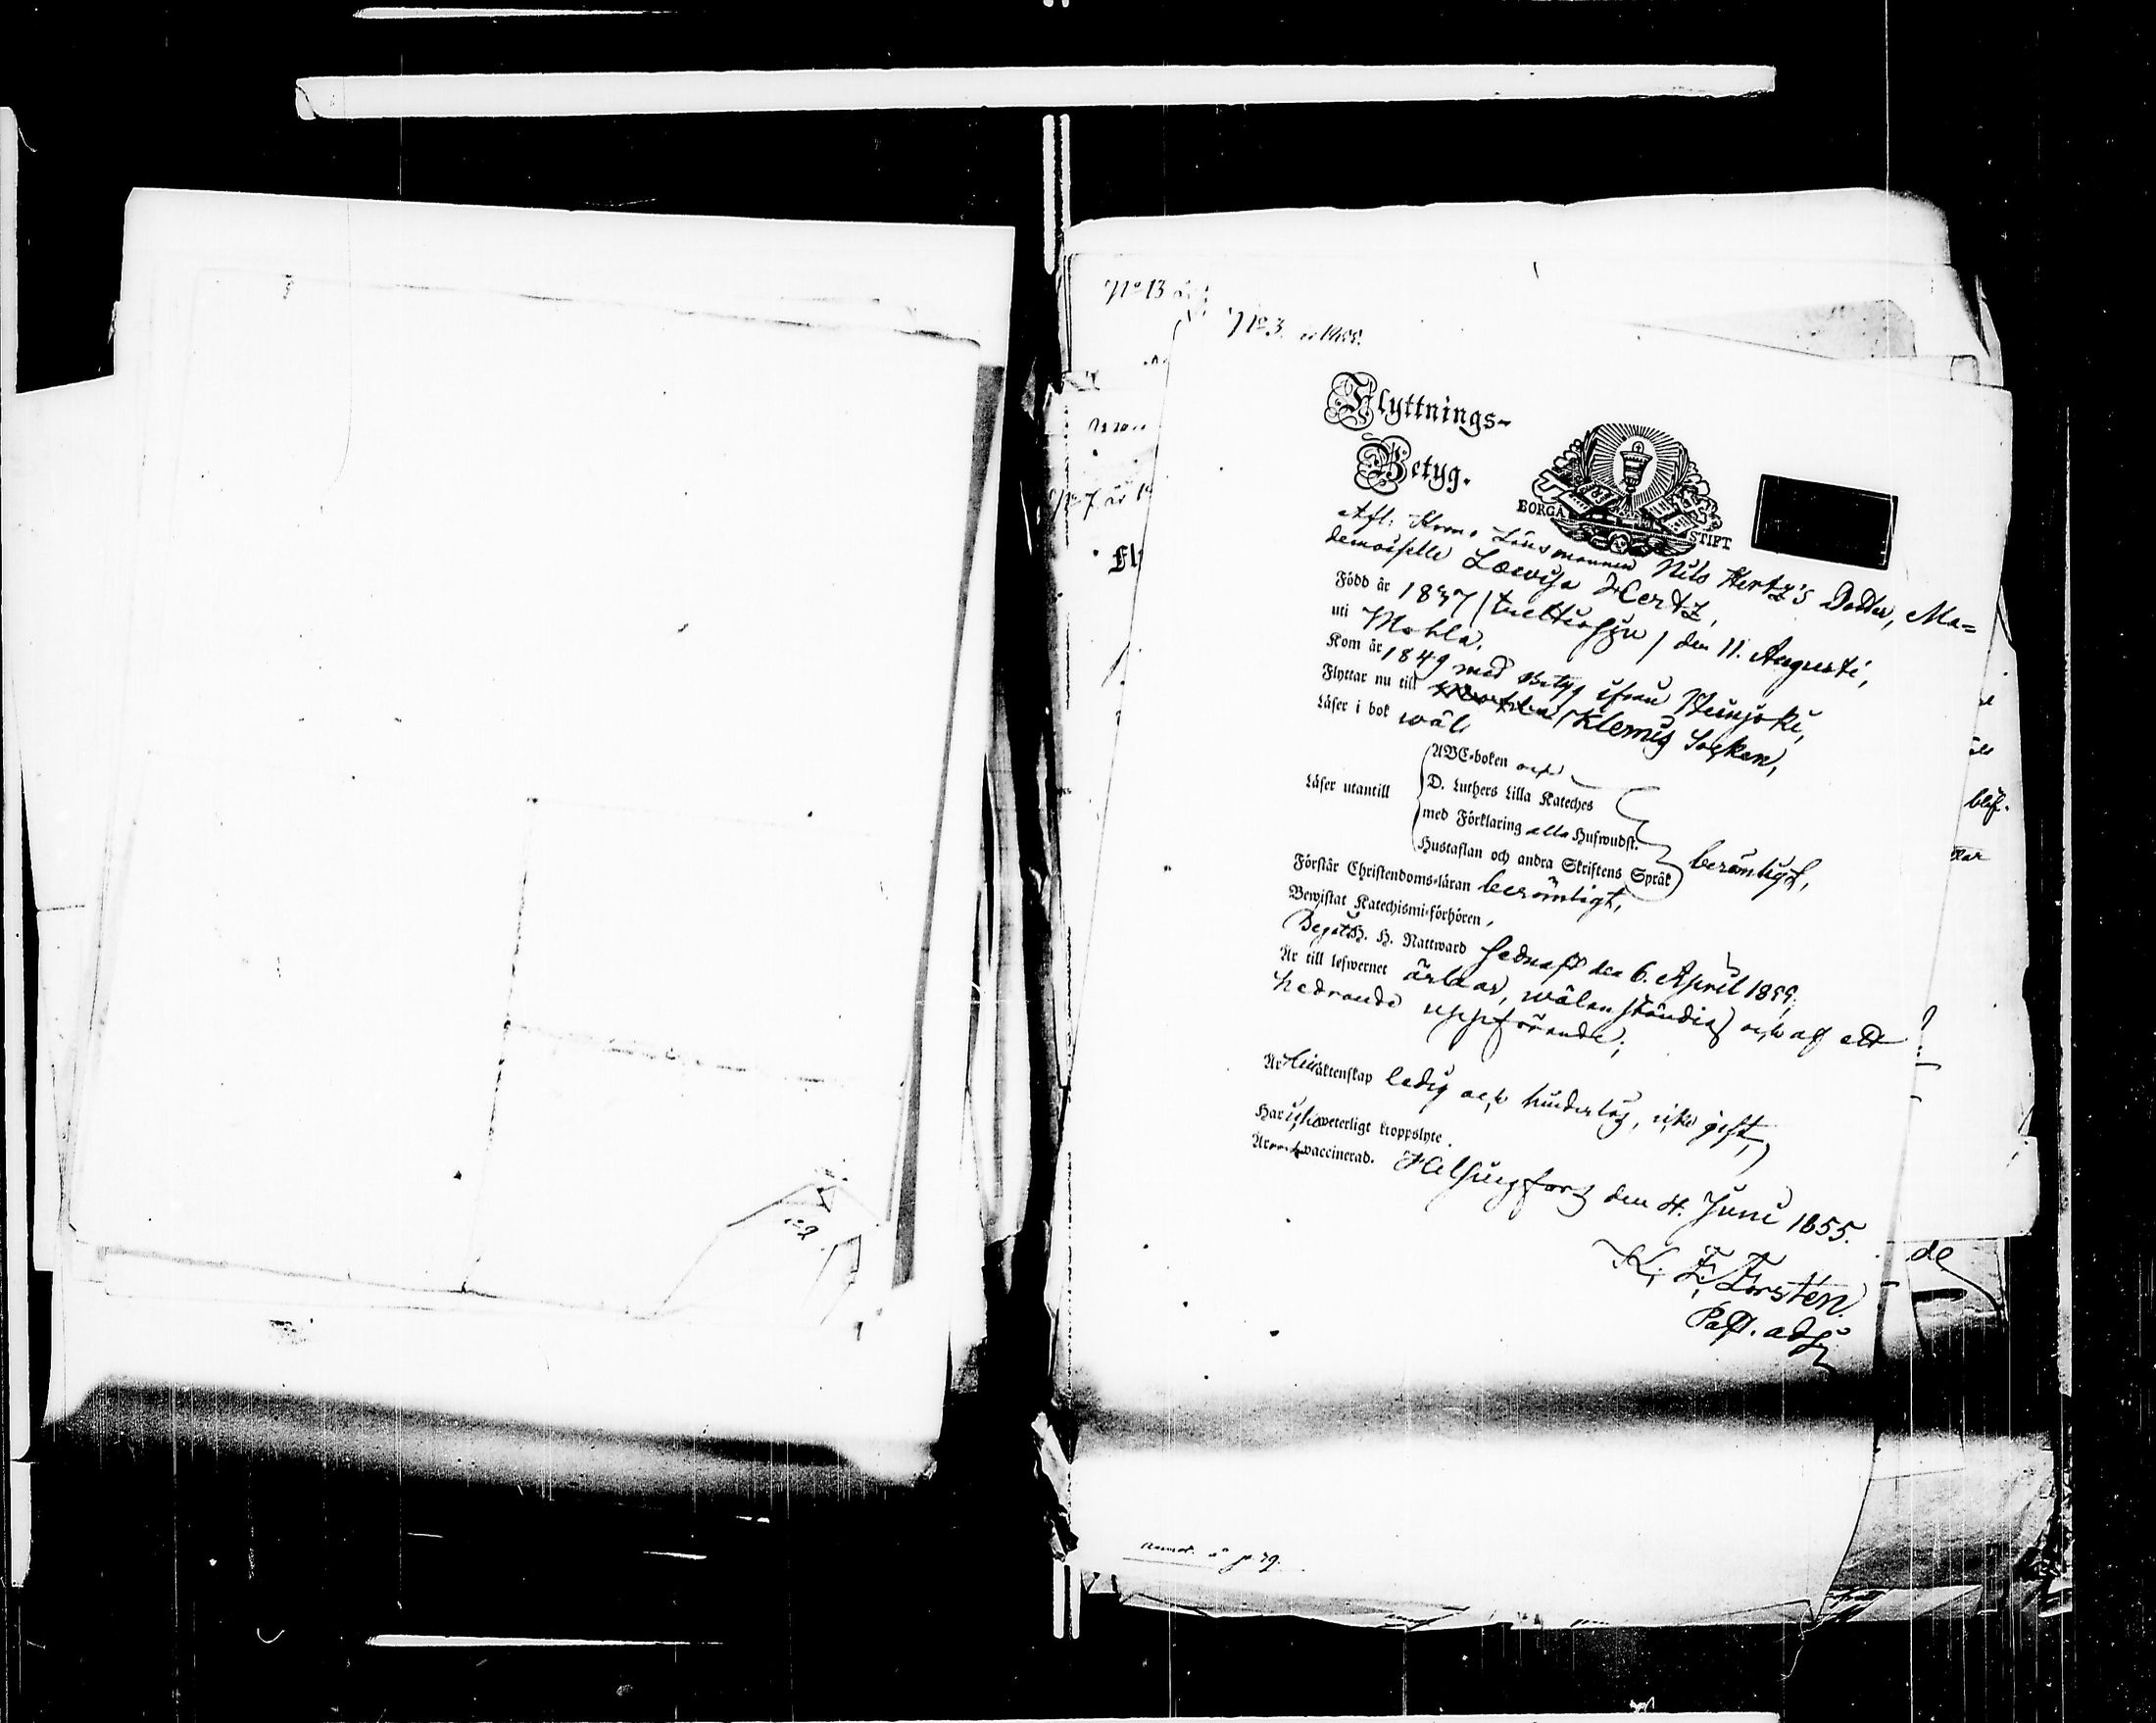 No 13
No 3. 1855.
No 7 år
Flyttnings-
Betyg.
BORGÅ STIFT
Afl: Krono Länsmannen Nils Hertz's Dotter, Ma=
demoiselle Lovisa Hertz,
Född år 1837 /trettiosju/ den 11. Augusti,
uti Mohla,
Kom år 1849 med Betyg ifrån Kuinjoki,
Flyttar nu till Klemis Socken,
Läser i bok wäl
Läser utantill
ABC-boken och
D. Luthers Lilla Kateches
med Förklaring alla Hufwudst.
Hustaflan och andra Skriftens Språk
berömligt,
Förstår Christendoms-läran berömligt,
Bewistat Katechismi-förhören,
Begått H. H. Nattward sednast den 6. April 1855,
Är till lefwernet ärbar, wälanständig och af ett
hedrande uppförande;
Är till äktenskap ledig och hinderlös, icke gift,
Har icke weterligt kroppslyte.
Är och vaccinerad. Helsingfors den 4. Juni 1855.
K. F. Forstén
Past. adj.
de
annot. p. 29.